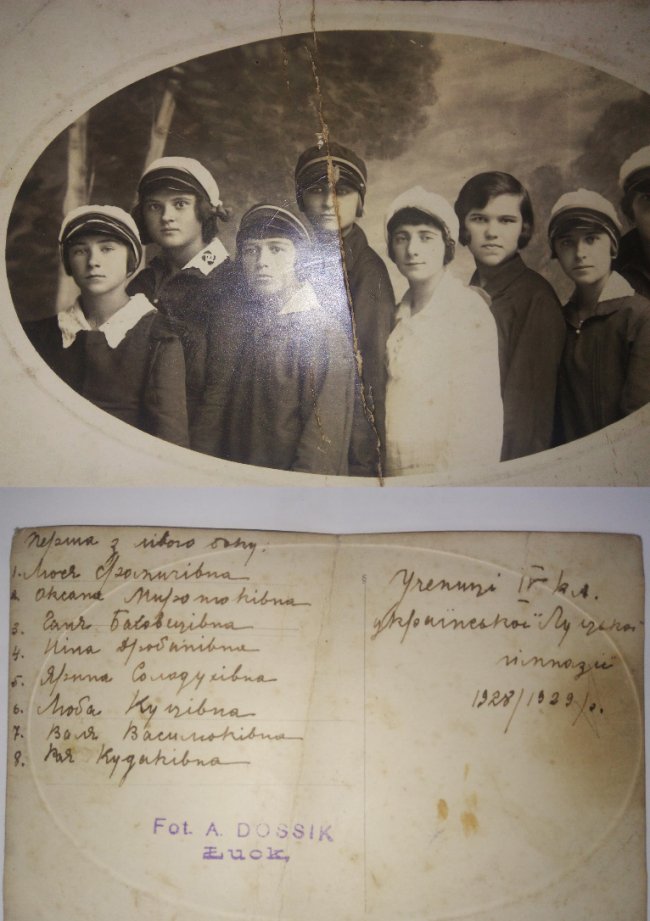 Перша з лівого боку:
1. Люся Франчівна
2. Оксана Миротюківна
3. Ганя
4. Ніна Дробанівна
5. Ярина Солодухівна
6. Люба Куцівна
7. Валя Василюківна
8. Кудаківна
Учениці IV кл.
української Луцької
гімназії
1928/1929 р.
Fot. A. DOSSIK
Łuck,